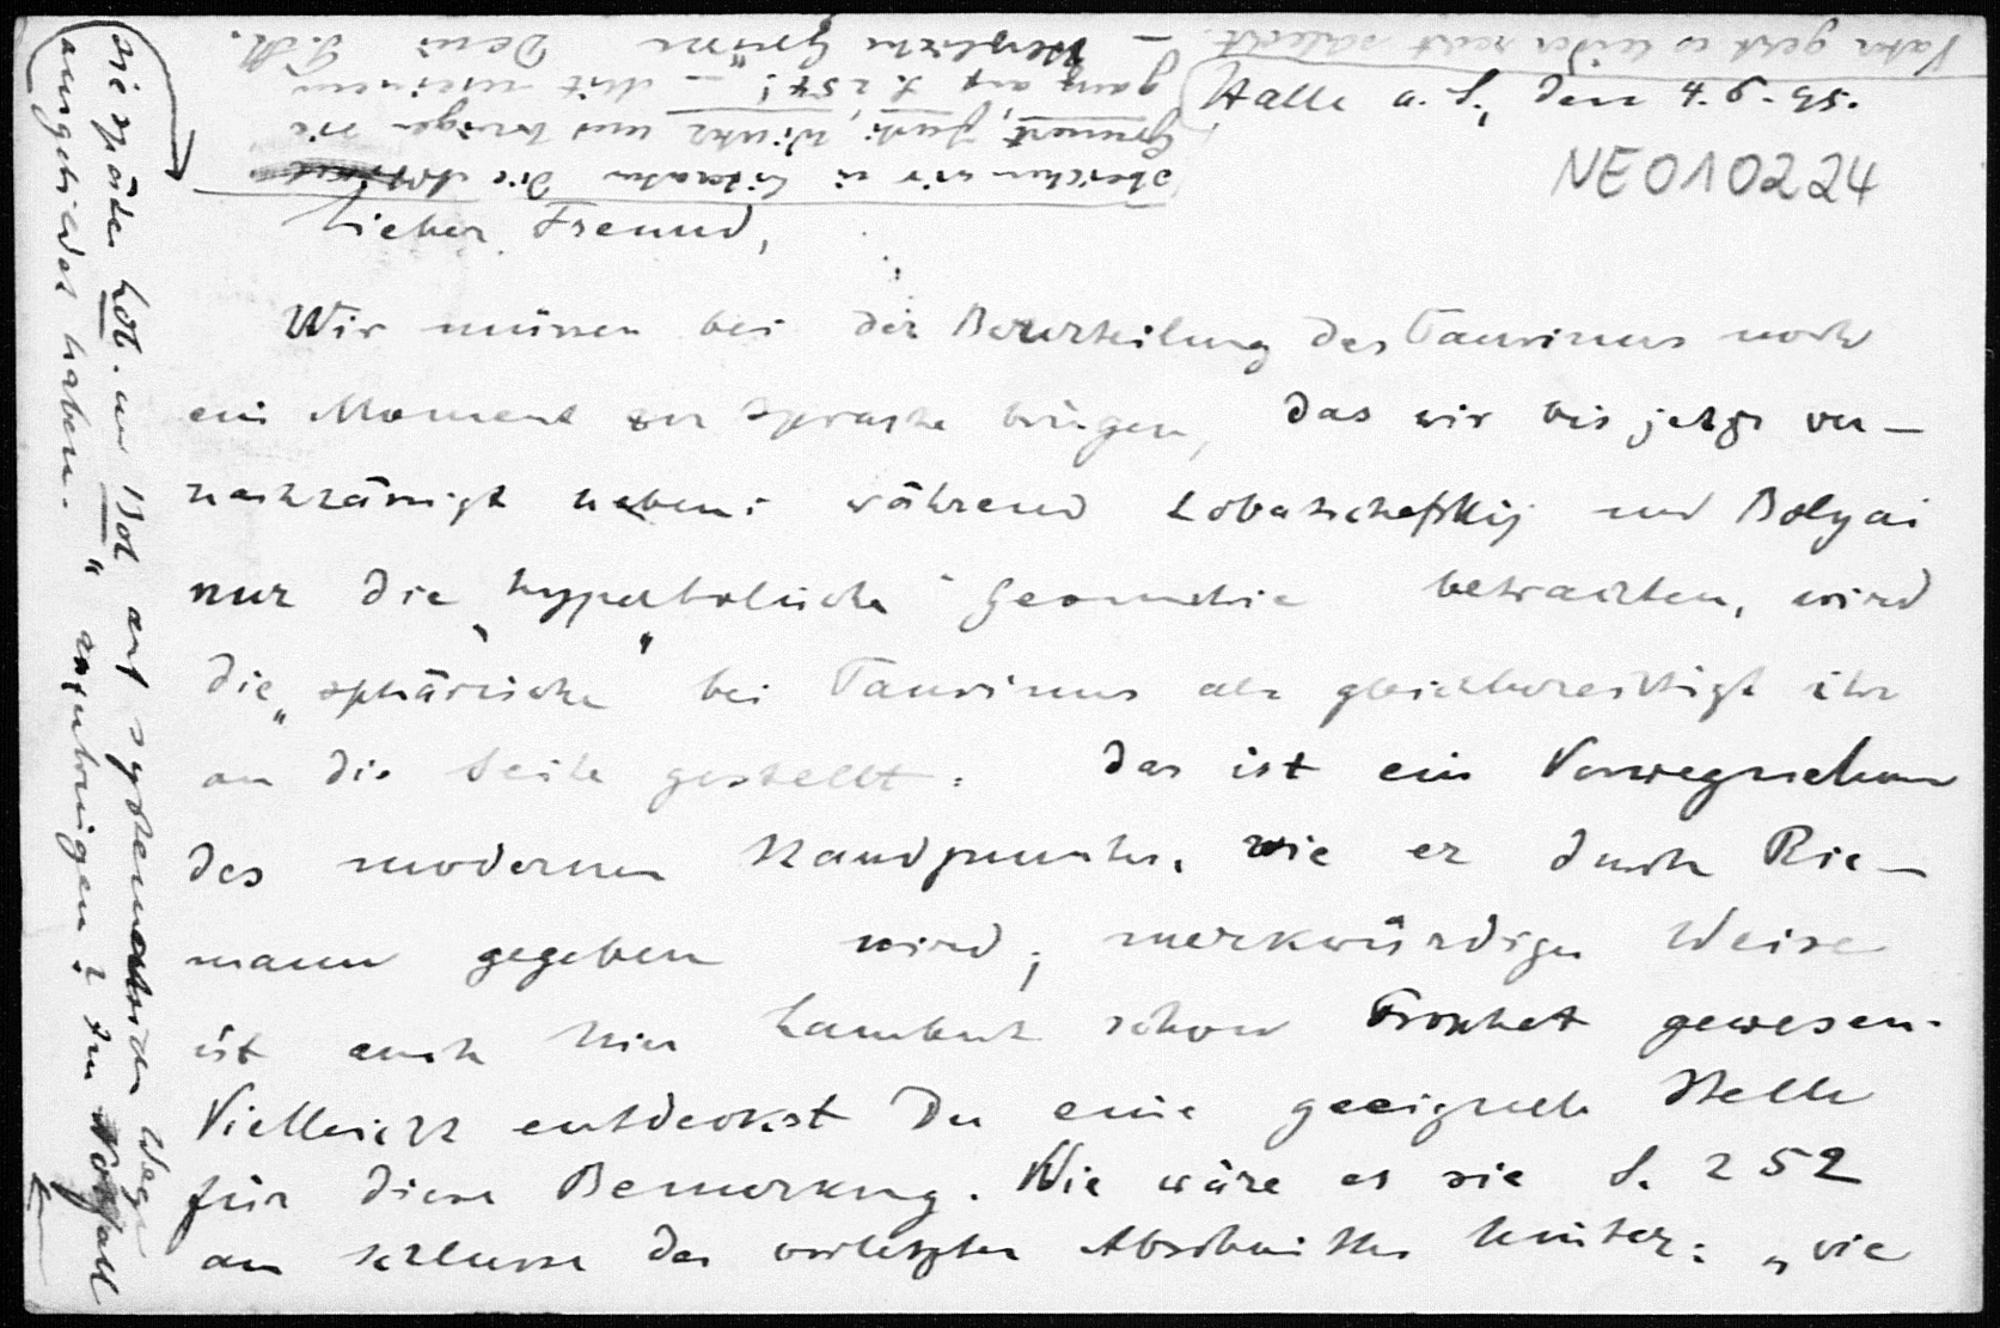 Halle a. S., den 4. 6. 95.
NE010224
Lieber Freund,
Wir müssen bei der Beurtheilung des Taurinus noch
ein Moment zur Sprache bringen, das wir bis jetzt ver-
nachlässigt haben: während Lobatschefskij und Bolyai
nur die „hyperbolische“ Geometrie betrachten, wird
die „sphärische“ bei Taurinus als gleichberechtigt ihr
an die Seite gestellt: das ist ein Vorwegnehmen
des modernen Standpunktes, wie er durch Rie-
mann gegeben wird; merkwürdiger Weise
ist auch hier Lambert schon Prophet gewesen.
Vielleicht entdeckst Du eine geeignete Stelle
für diese Bemerkung. Wie wäre es sie S. 252
am Schlusse des vorletzten Abschnittes hinter: „wie
sie später Lob. und Bol auf systematischem Wege
ausgebildet haben.“ anzubringen? Im Notfall
streichen wir in Literatur die
Grunert, und bringen sie
ganz auf S. 254! — Mit
herzlichen Grüssen Dein
Vater geht es leider recht schlecht.